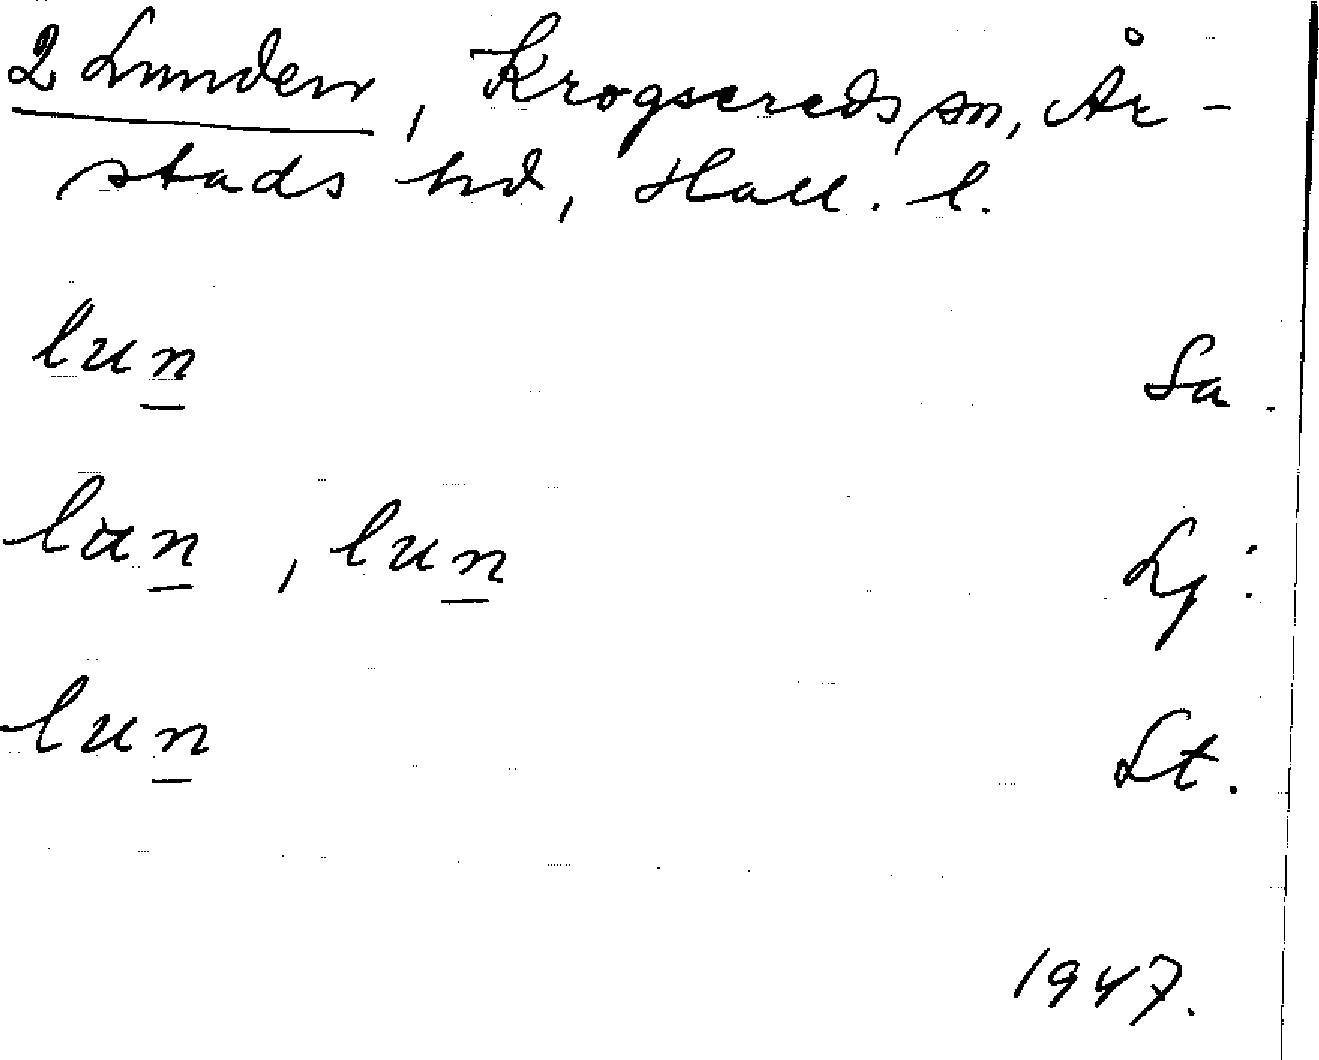 2 Lunden, Krogsereds sn, År-
stads hd, Hall. l.
lun̲ Sa.
lun̲, lun̲ Lj:
lun̲ St.
1947.